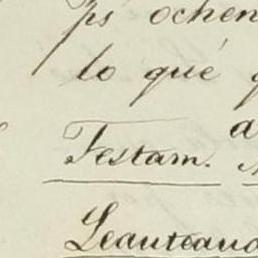 ps ochen
lo qué
Testam.
Leauteaud